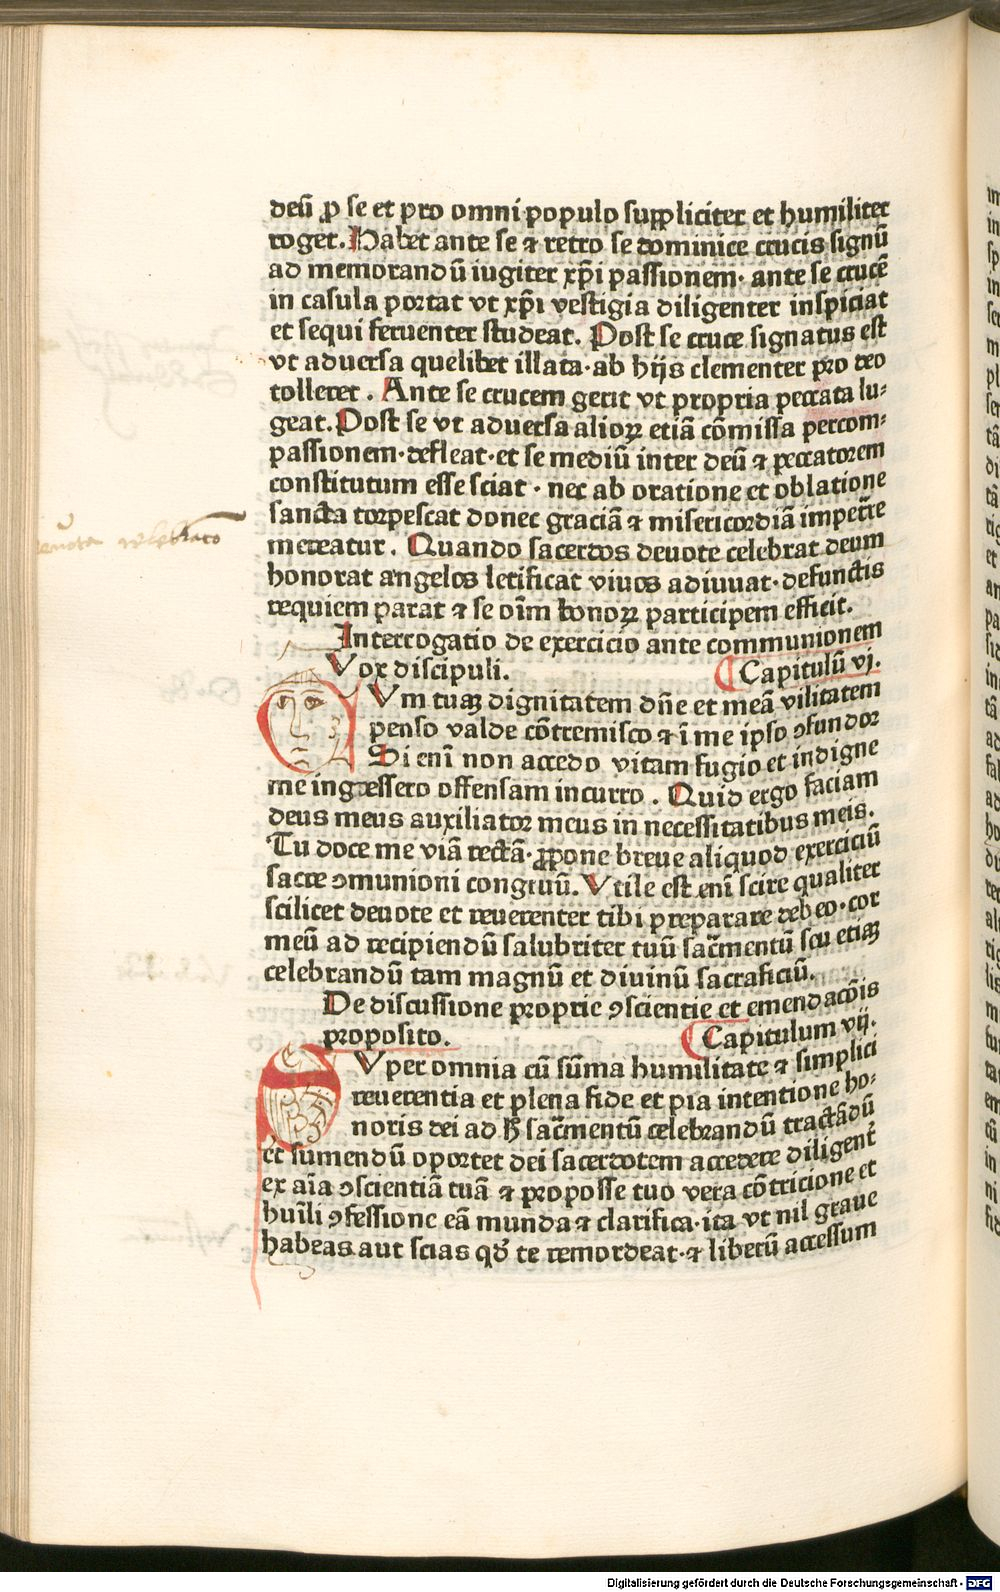 deū ꝓ se et pro omni populo suppliciter et humiliter
roget. Habet ante se ⁊ retro se dominice crucis signū
ad memorandū iugiter xp̄i passionem· ante se crucē
in casula portat vt xp̄i vestigia diligenter inspiciat
et sequi feruenter studeat. Post se cruce signatus est
vt aduersa quelibet illata·ab hijs clementer pro deo
tolleret. Ante se crucem gerit vt propria peccata lu⸗
geat. Post se vt aduersa alioꝝ etiā cōmissa percom⸗
passionem·defleat·et se mediū inter deū ⁊ peccatorem
constitutum esse sciat· nec ab oratione et oblatione
sancta torpescat donec graciā ⁊ misericordiā impetre
mereatur. Quando sacerdos deuote celebrat deum
honorat angelos letificat viuos adiuuat·defunctis
requiem parat ⁊ se oīm bonoꝝ participem efficit.
celebrato
Interrogatio de exercicio ante communionem
Vox discipuli. Capitulū vj.
CVm tuaꝫ dignitatem dn̄e et meā vilitatem
penso valde cōtremisco ⁊ ī me ipso ꝯfundor
Si enī non accedo vitam fugio et indigne
me ingessero offensam incurro. Quid ergo faciam
deus meus auxiliator meus in necessitatibus meis.
Tu doce me viā rectā·ꝓpone breue aliquod exerciciū
sacre ꝯmunioni congruū. Vtile est enī scire qualiter
scilicet deuote et reuerenter tibi preparare debeo·cor
meū ad recipiendū salubriter tuū sac̄mentū seu etiaꝫ
celebrandū tam magnū et diuinū sacrificiū.
De discussione proprie ꝯscientie et emendacōis
proposito. Capitulum vij.
SVper omnia cū sūma humilitate ⁊ simplici
reuerentia et plena fide et pia intentione ho⸗
noris dei ad h̄ sac̄mentū celebrandū tractādū
et sumendū oportet dei sacerdotem accedere diligent̄
ex aīa ꝯscientiā tuā ⁊ pro posse tuo vera cōtricione et
huīli ꝯfessione eā munda ⁊ clarifica·ita vt nil graue
habeas aut scias qd̓ te remordeat·⁊ liberū accessum
Digitalisierung gefördert durch die Deutsche Forschungsgemeinschaft - DFG